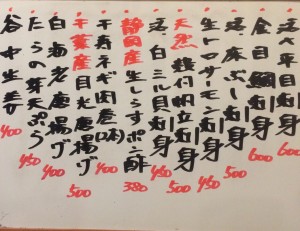 活〆平目刺身 600
金目鯛刺身 600
活〆ぶり刺身 500
生トロサーモン刺身 450
天然殻付帆立刺身 500
活白ミル貝刺身 450
静岡産生しらすポン酢 380
千寿ネギ肉巻 400
千葉産目光唐揚げ 500
白海老唐揚げ 400
たらの芽天ぷら 450
谷中生姜 400